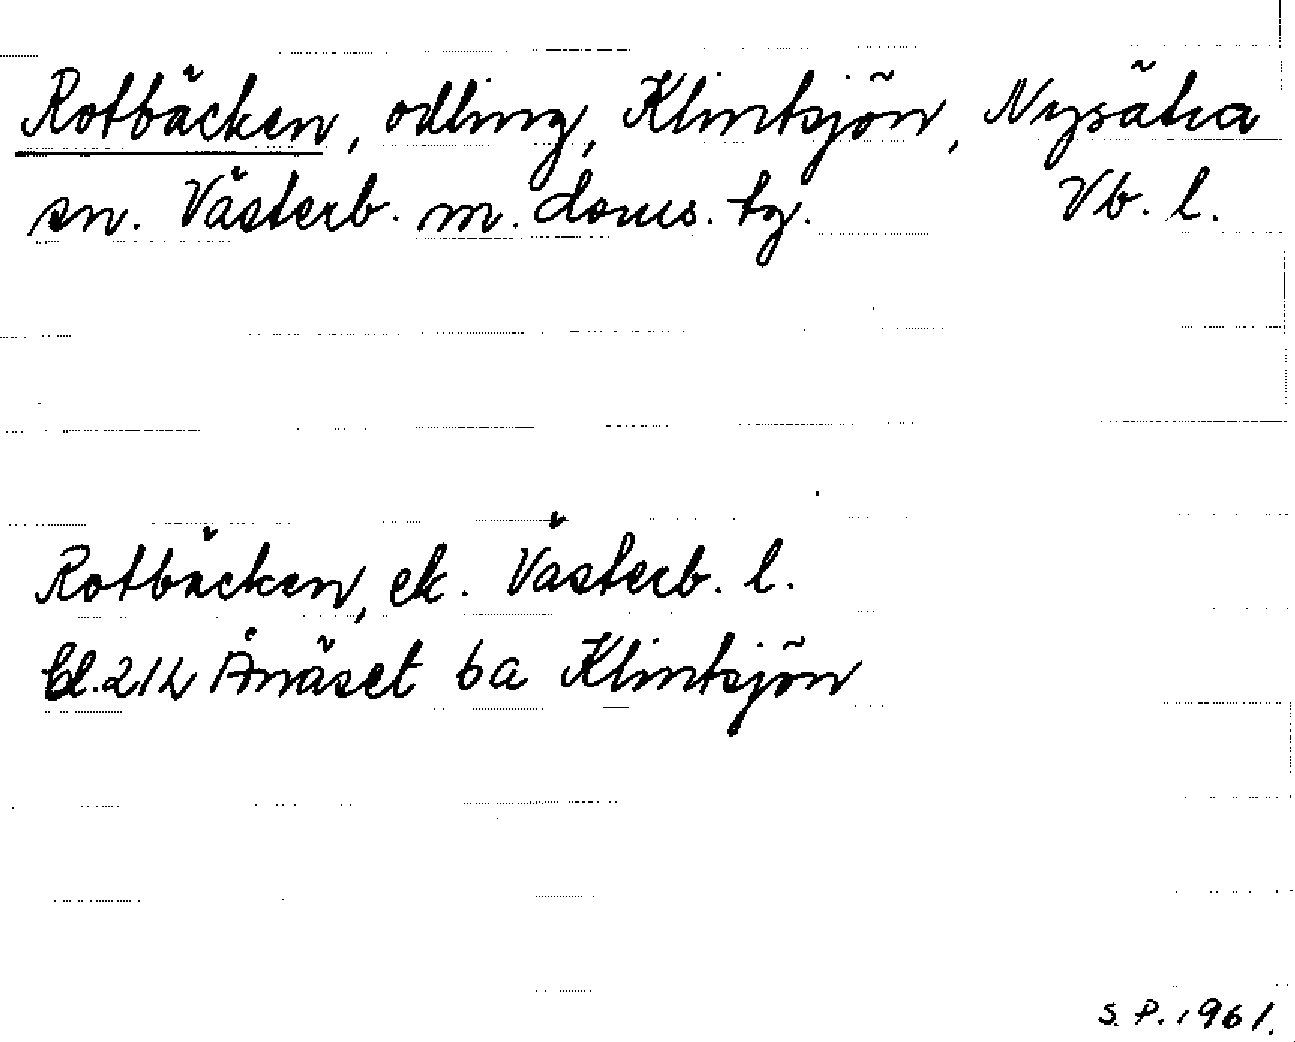 Rotbäcken, odling, Klintsjön, Nysätra
sn. Västerb. m. doms. tg. Vb. l.
Rotbäcken, ek. Västerb. l.
bl. 212 Ånäset 6a Klintsjön
S. P. 1961.